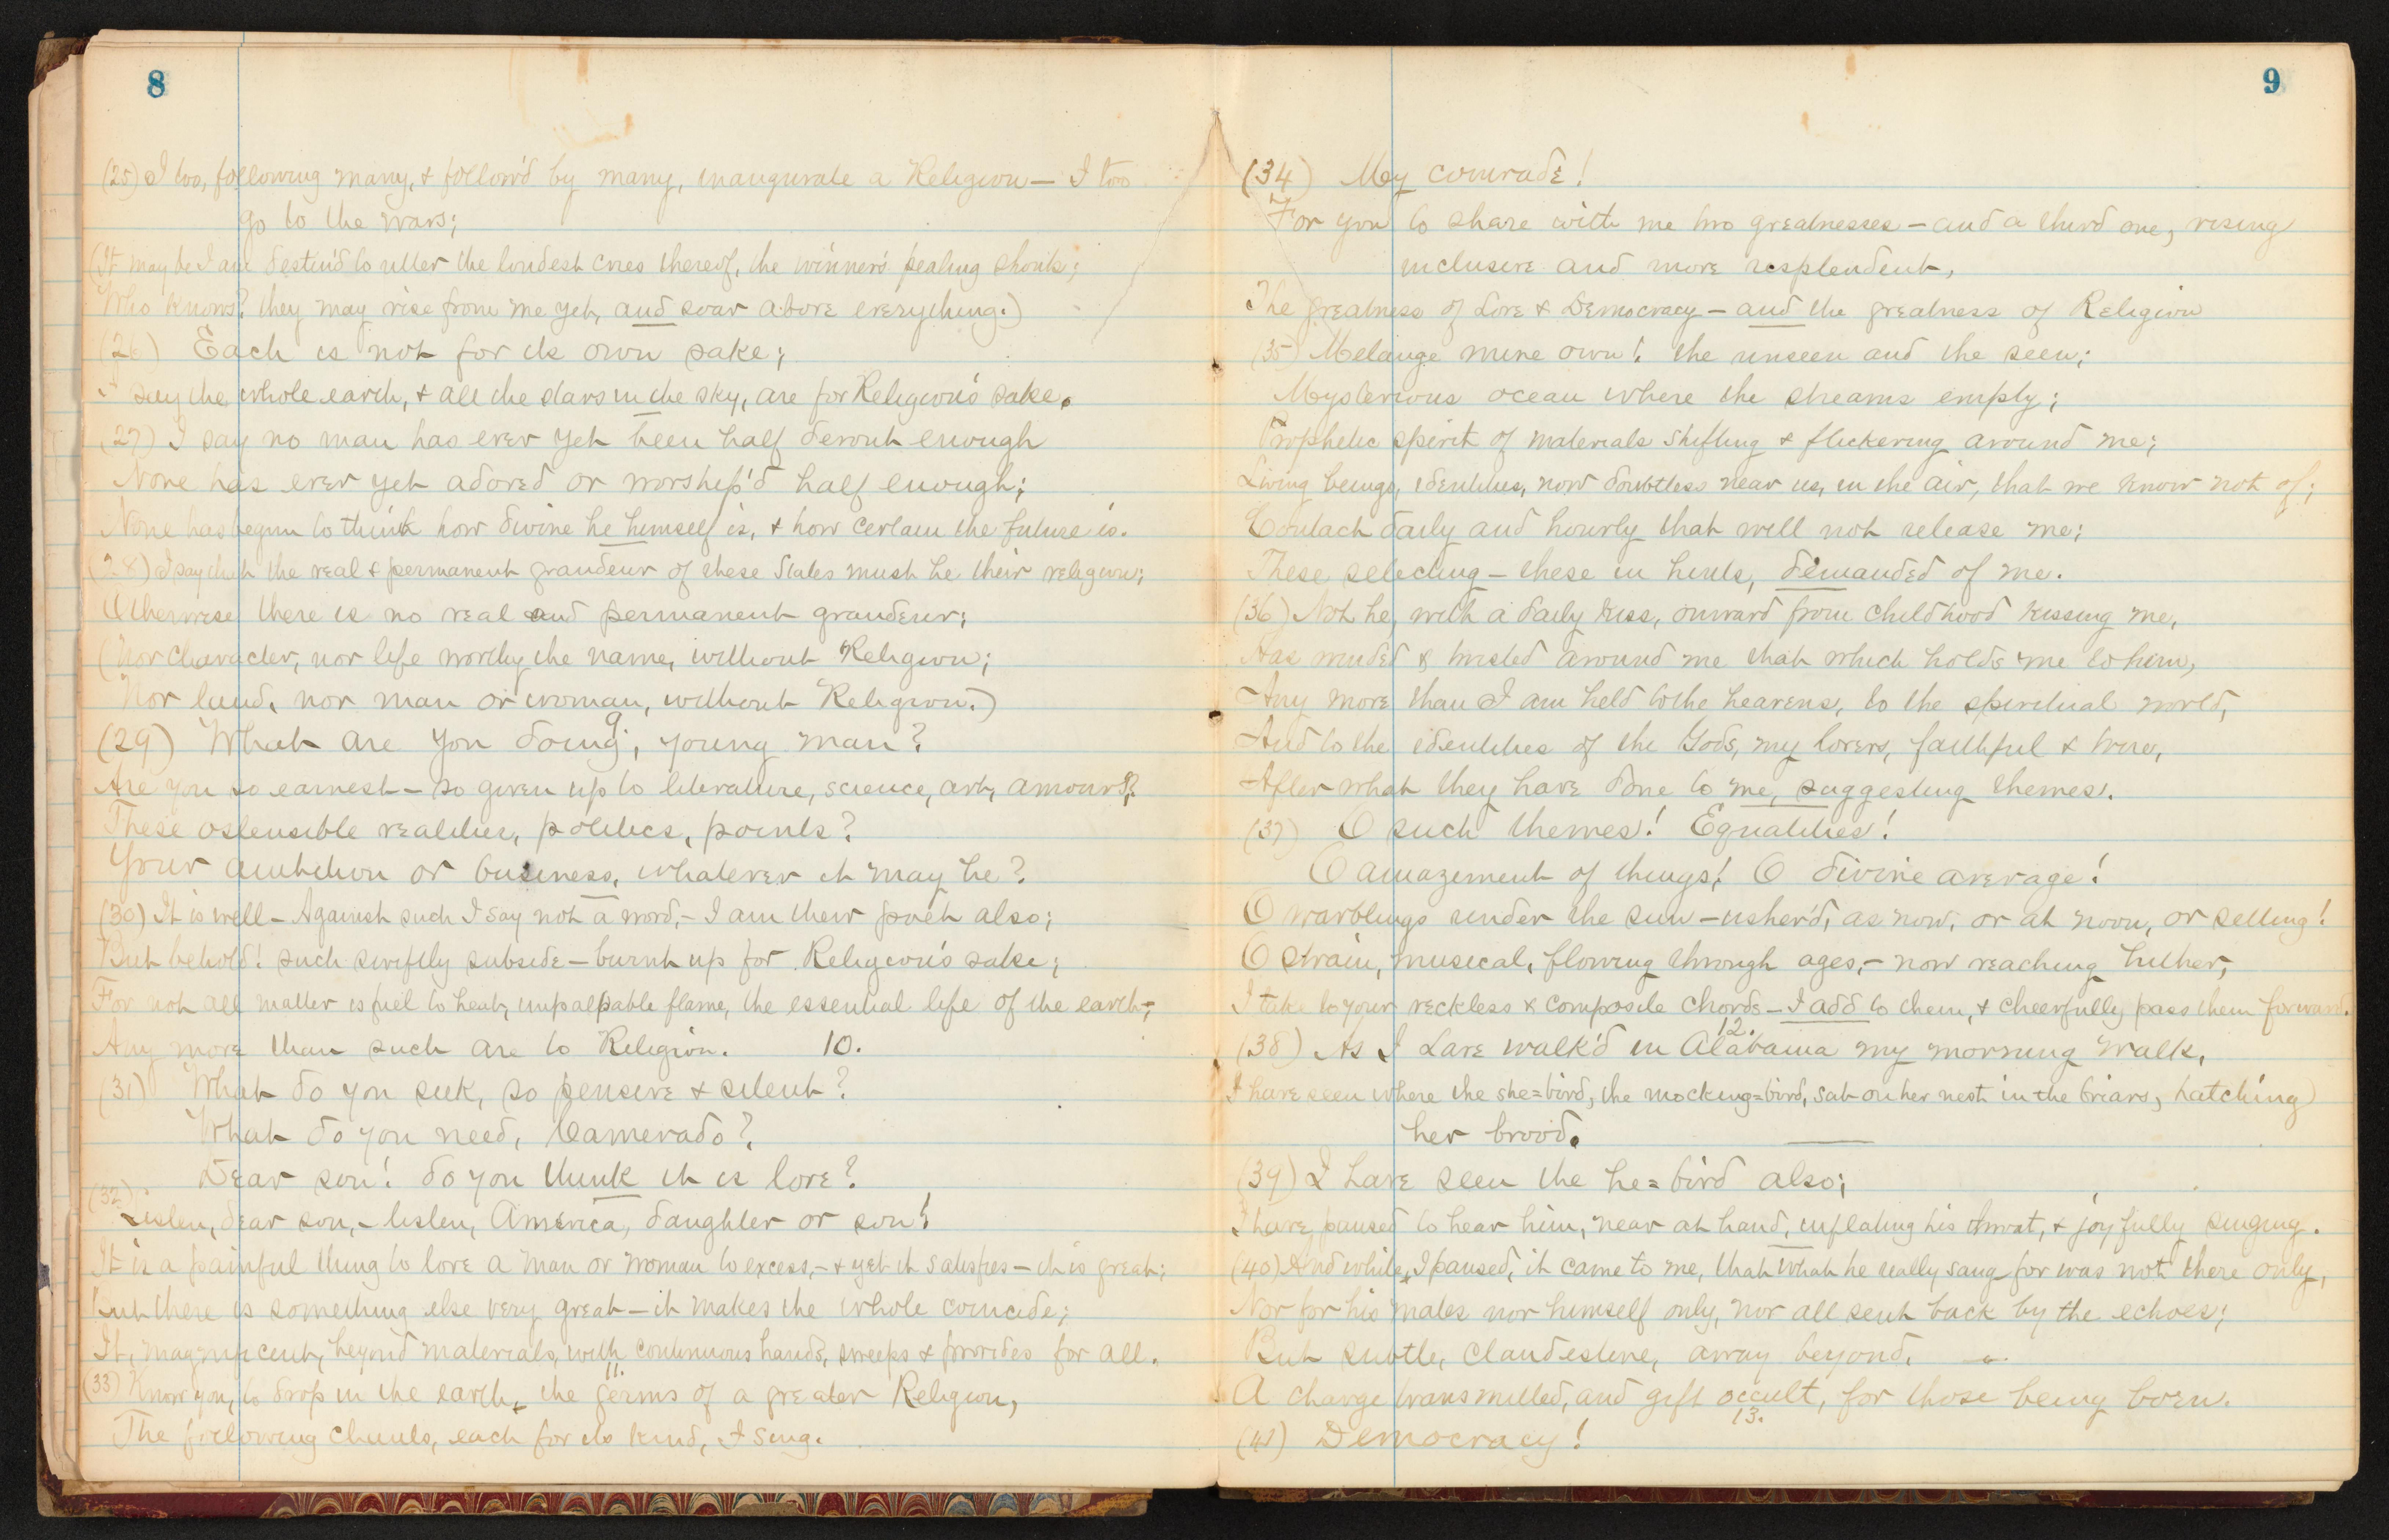 8
(25) I too, following many, & follow'd by many, inaugurate a Religion — I too
go to the wars;
(It may be I am destin'd to utter the loudest cries thereof, the winner's pealing shouts;
Who knows? they may rise from me yet, and soar above everything.)
(26) Each is not for its own sake;
I say the whole earth, & all the stars in the sky, are for Religion's sake.
(27) I say no man has ever yet been half devout enough
None has ever yet adored or worship'd half enough;
None has begun to think how divine he himself is, & how certain the future is.
(28) I say that the real & permanent grandeur of these States must be their religion;
Otherwise there is no real and permanent grandeur;
(Nor character, nor life worthy the name, without Religion;
Nor land, nor man or woman, without Religion.)
9
(29) What are you doing, young man?
Are you so earnest — so given up to literature, science, art, amours?
These ostensible realities, politics, points?
Your ambition or business, whatever it may be?
(30) It is well — Against such I say not a word, — I am their poet also;
But behold! such swiftly subside — burnt up for Religion's sake;
For not all matter is fuel to heat, impalpable flame, the essential life of the earth,
Any more than such are to Religion. 10.
(31) What do you seek, so pensive & silent?
What do you need, Camerado?
Dear son! do you think it is love?
(32) Listen, dear son, — listen, America, daughter or son!
It is a painful thing to love a man or woman to excess, — & yet it satisfies — it is great;
But there is something else very great — it makes the whole coincide;
It, magnificent, beyond materials, with continuous hands, sweeps & provides for all.
11.
(33) Know you, to drop in the earth, the germs of a greater Religion,
The following chants, each for its kind, I sing.
9
(34) My comrade!
For you to share with me two greatnesses — and a third one, rising
inclusive and more resplendent,
The greatness of Love & Democracy — and the greatness of Religion
(35) Melange mine own! the unseen and the seen;
Mysterious ocean where the streams empty;
Prophetic spirit of materials shifting & flickering around me;
Living beings, identities, now doubtless near us, in the air, that we know not of;
Contact daily and hourly that will not release me;
These selecting — these in hints, demanded of me.
(36) Not he, with a daily kiss, onward from childhood kissing me,
Has winded & twisted around me that which holds me to him,
Any more than I am held to the heavens, to the spiritual world,
And to the identities of the Gods, my lovers, faithful & true,
After what they have done to me, suggesting themes.
(37) O such themes! Equalities!
O amazement of things! O divine average!
O warblings under the sun — usher'd, as now, or at noon, or setting!
O strain, musical, flowing through ages, — now reaching hither,
I take to your reckless & composite chords — I add to them, & cheerfully pass them forward.
12.
(38) As I have walk'd in Alabama my morning walk,
I have seen where the she=bird, the mocking=bird, sat on her nest in the briars, hatching
her brood.
(39) I have seen the he=bird also;
I have paused to hear him, near at hand, inflating his throat, & joyfully singing.
(40) And while I paused, it came to me, that what he really sang for was not there only,
Nor for his mates nor himself only, nor all sent back by the echoes;
But subtle, clandestine, away beyond,
A charge transmitted, and gift occult, for those being born.
13.
(41) Democracy!